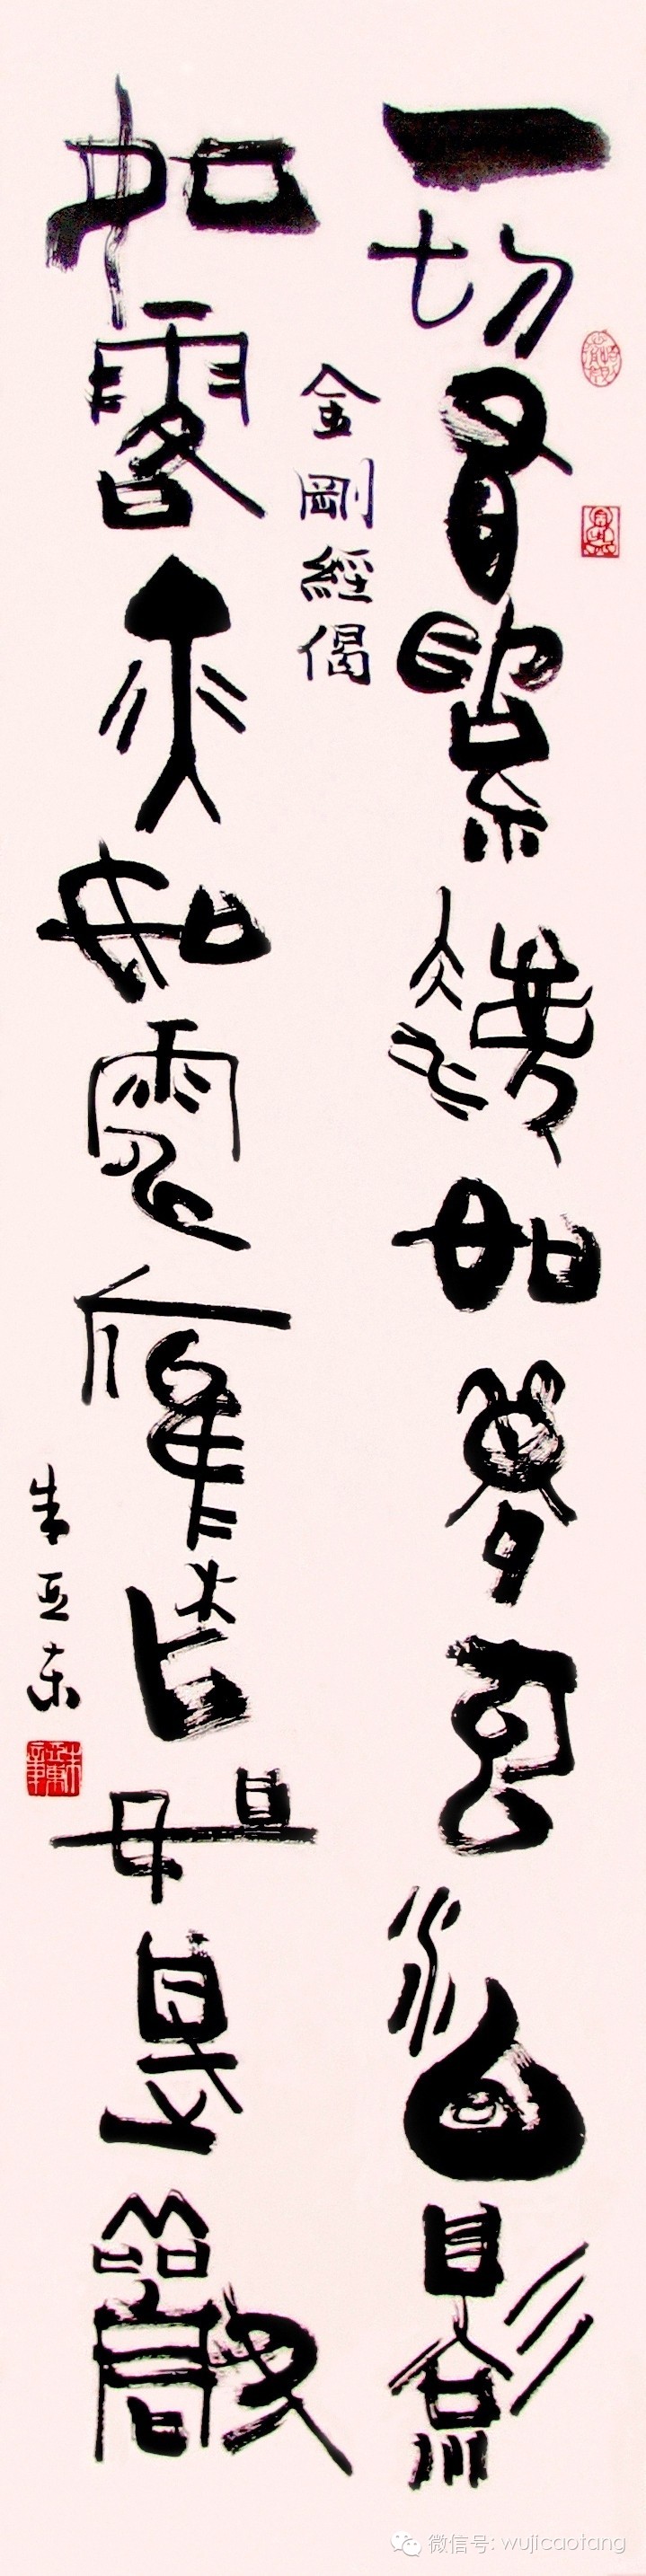 一切有為法如夢幻泡影
如露亦如電應作如是觀
金剛經偈
朱亚东
微信号: wujicaotang